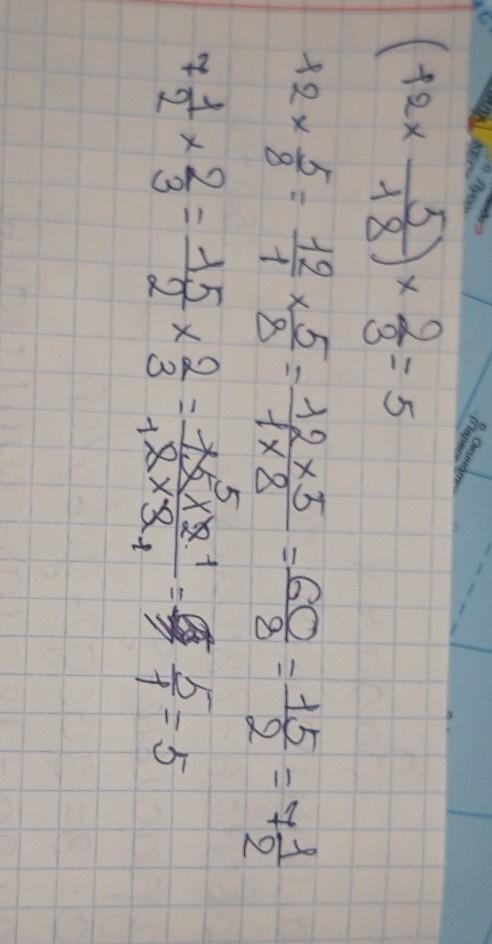 (12 × 5/18) × 2/3 = 5
12 × 5/8 = 12/1 × 5/8 = 12 × 5/1 × 8 = 60/8 = 15/2 = 7 1/2
7 1/2 × 2/3 = 15/2 × 2/3 = 15 5 × 2 1/1 2 × 3 1 = 5/1 = 5